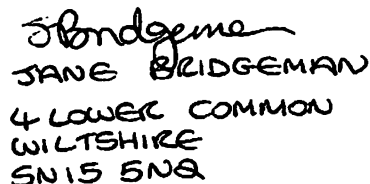 J Bridgeman
JANE BRIDGEMAN
4 LOWER COMMON
WILTSHIRE
SN15 5NQ